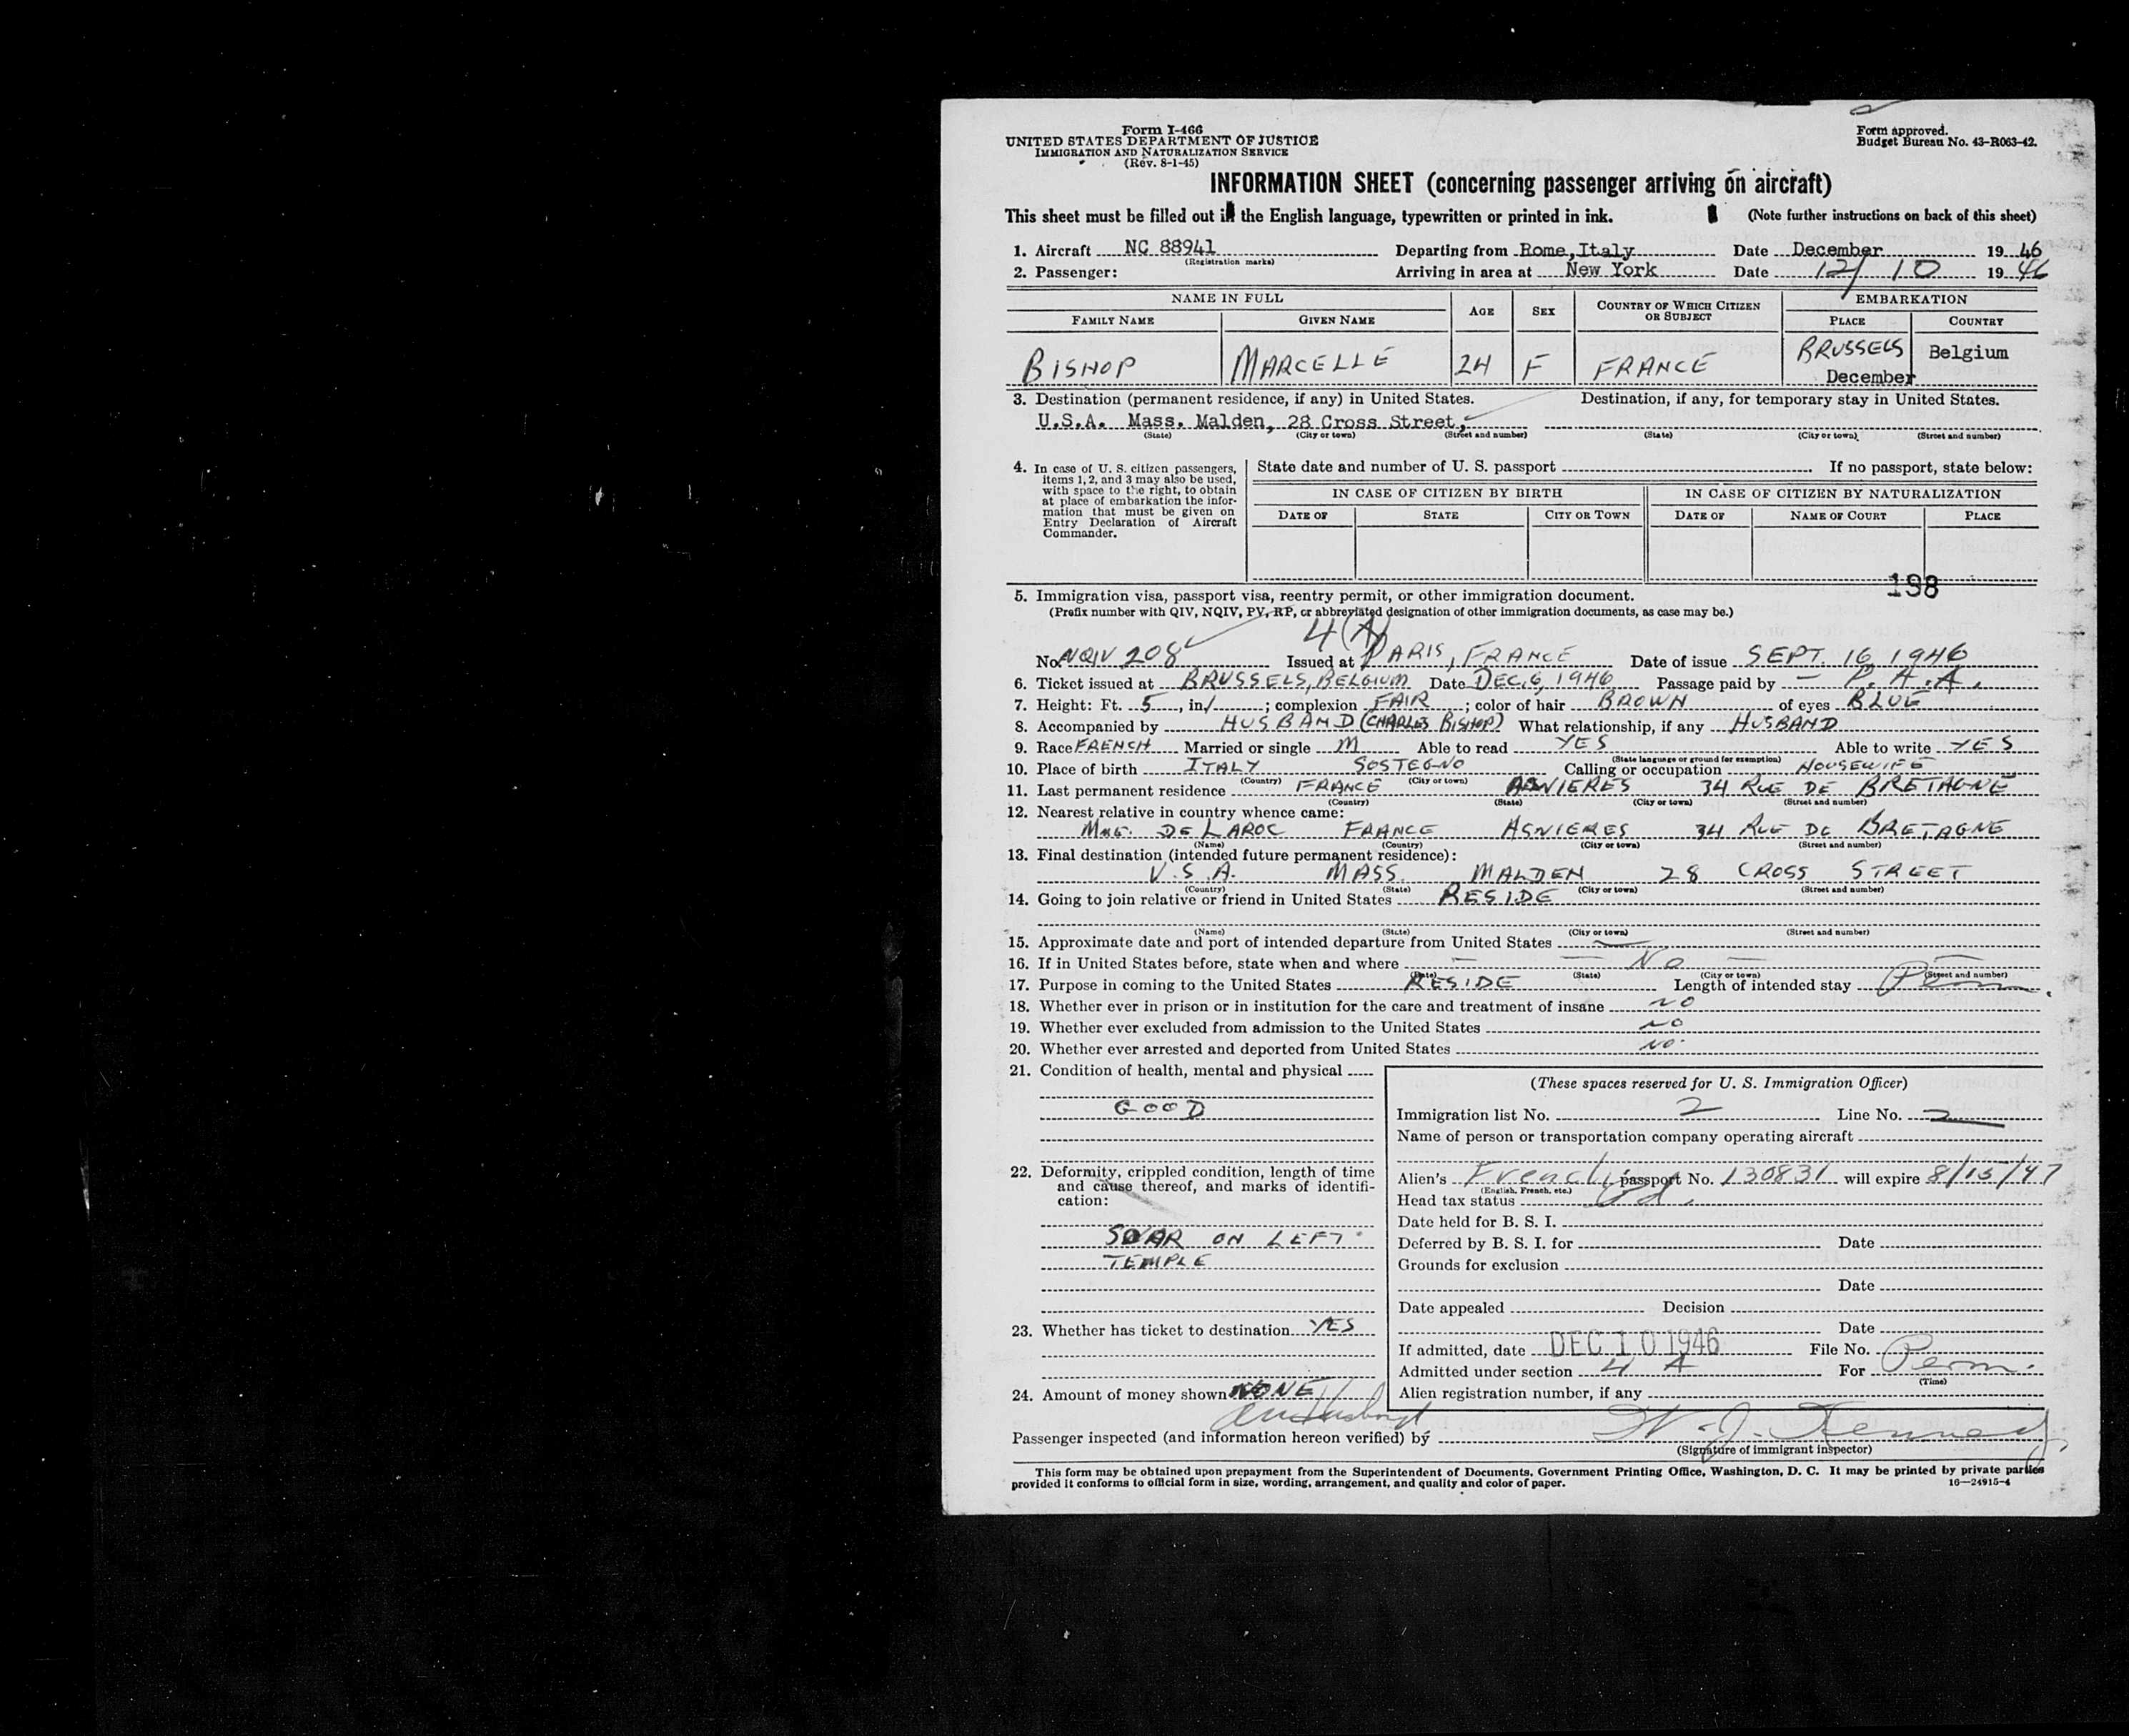 Form I-466
UNITED STATES DEPARTMENT OF JUSTICE
IMMIGRATION AND NATURALIZATION SERVICE
(Rev. 8-1-45)
Form approved.
Budget Bureau No. 43-R063-42.
INFORMATION SHEET (concerning passenger arriving on aircraft)
This sheet must be filled out in the English language, typewritten or printed in ink. (Note further instructions on back of this sheet)
1. Aircraft NC 88941 Departing from Rome, Italy Date December 1946
(Registration marks)
2. Passenger: Arriving in area at New York Date 12/10 1946
NAME IN FULL AGE SEX COUNTRY OF WHICH CITIZEN OR SUBJECT EMBARKATION
FAMILY NAME GIVEN NAME PLACE COUNTRY
BISHOP MARCELLE 24 F FRANCE BRUSSELS Belgium
December
3. Destination (permanent residence, if any) in United States. Destination, if any, for temporary stay in United States.
U.S.A. Mass. Malden, 28 Cross Street,
(State) (City or town) (Street and number) (State) (City or town) (Street and number)
4. In case of U. S. citizen passengers, items 1, 2, and 3 may also be used, with space to the right, to obtain at place of embarkation the information that must be given on Entry Declaration of Aircraft Commander.
State date and number of U. S. passport If no passport, state below:
IN CASE OF CITIZEN BY BIRTH IN CASE OF CITIZEN BY NATURALIZATION
DATE OF STATE CITY OR TOWN DATE OF NAME OF COURT PLACE
198
5. Immigration visa, passport visa, reentry permit, or other immigration document.
(Prefix number with QIV, NQIV, PV, RP, or abbreviated designation of other immigration documents, as case may be.)
4(A)
No. NQIV 208 Issued at PARIS, FRANCE Date of issue SEPT. 16, 1946
6. Ticket issued at BRUSSELS, BELGIUM Date DEC. 6, 1946 Passage paid by — P.A.A.
7. Height: Ft. 5, in. 1; complexion FAIR; color of hair BROWN of eyes BLUE
8. Accompanied by HUSBAND (CHARLES BISHOP) What relationship, if any HUSBAND
9. Race FRENCH Married or single M Able to read YES Able to write YES
(State language or ground for exemption)
10. Place of birth ITALY SOSTEGNO Calling or occupation HOUSEWIFE
(Country) (City or town)
11. Last permanent residence FRANCE ASNIERES 34 RUE DE BRETAGNE
(Country) (State) (City or town) (Street and number)
12. Nearest relative in country whence came:
MME. DE LAROC FRANCE ASNIERES 34 RUE DE BRETAGNE
(Name) (Country) (City or town) (Street and number)
13. Final destination (intended future permanent residence):
U.S.A. MASS. MALDEN 28 CROSS STREET
(Country) (State) (City or town) (Street and number)
14. Going to join relative or friend in United States RESIDE
(Name) (State) (City or town) (Street and number)
15. Approximate date and port of intended departure from United States —
16. If in United States before, state when and where — — NO — —
(Date) (State) (City or town) (Street and number)
17. Purpose in coming to the United States RESIDE Length of intended stay Perm.
18. Whether ever in prison or in institution for the care and treatment of insane NO
19. Whether ever excluded from admission to the United States NO
20. Whether ever arrested and deported from United States NO.
21. Condition of health, mental and physical
GOOD
22. Deformity, crippled condition, length of time and cause thereof, and marks of identification:
SCAR ON LEFT
TEMPLE
23. Whether has ticket to destination YES
24. Amount of money shown NONE
(These spaces reserved for U. S. Immigration Officer)
Immigration list No. 2 Line No. 2
Name of person or transportation company operating aircraft
Alien's French passport No. 130831 will expire 8/15/47
(English, French, etc.)
Head tax status Pd.
Date held for B. S. I.
Deferred by B. S. I. for Date
Grounds for exclusion
Date
Date appealed Decision
Date
If admitted, date DEC 10 1946 File No.
Admitted under section 4 A For Perm.
(Time)
Alien registration number, if any
Passenger inspected (and information hereon verified) by W. J. Kennedy
(Signature of immigrant inspector)
This form may be obtained upon prepayment from the Superintendent of Documents, Government Printing Office, Washington, D. C. It may be printed by private parties
provided it conforms to official form in size, wording, arrangement, and quality and color of paper. 16—24915-4